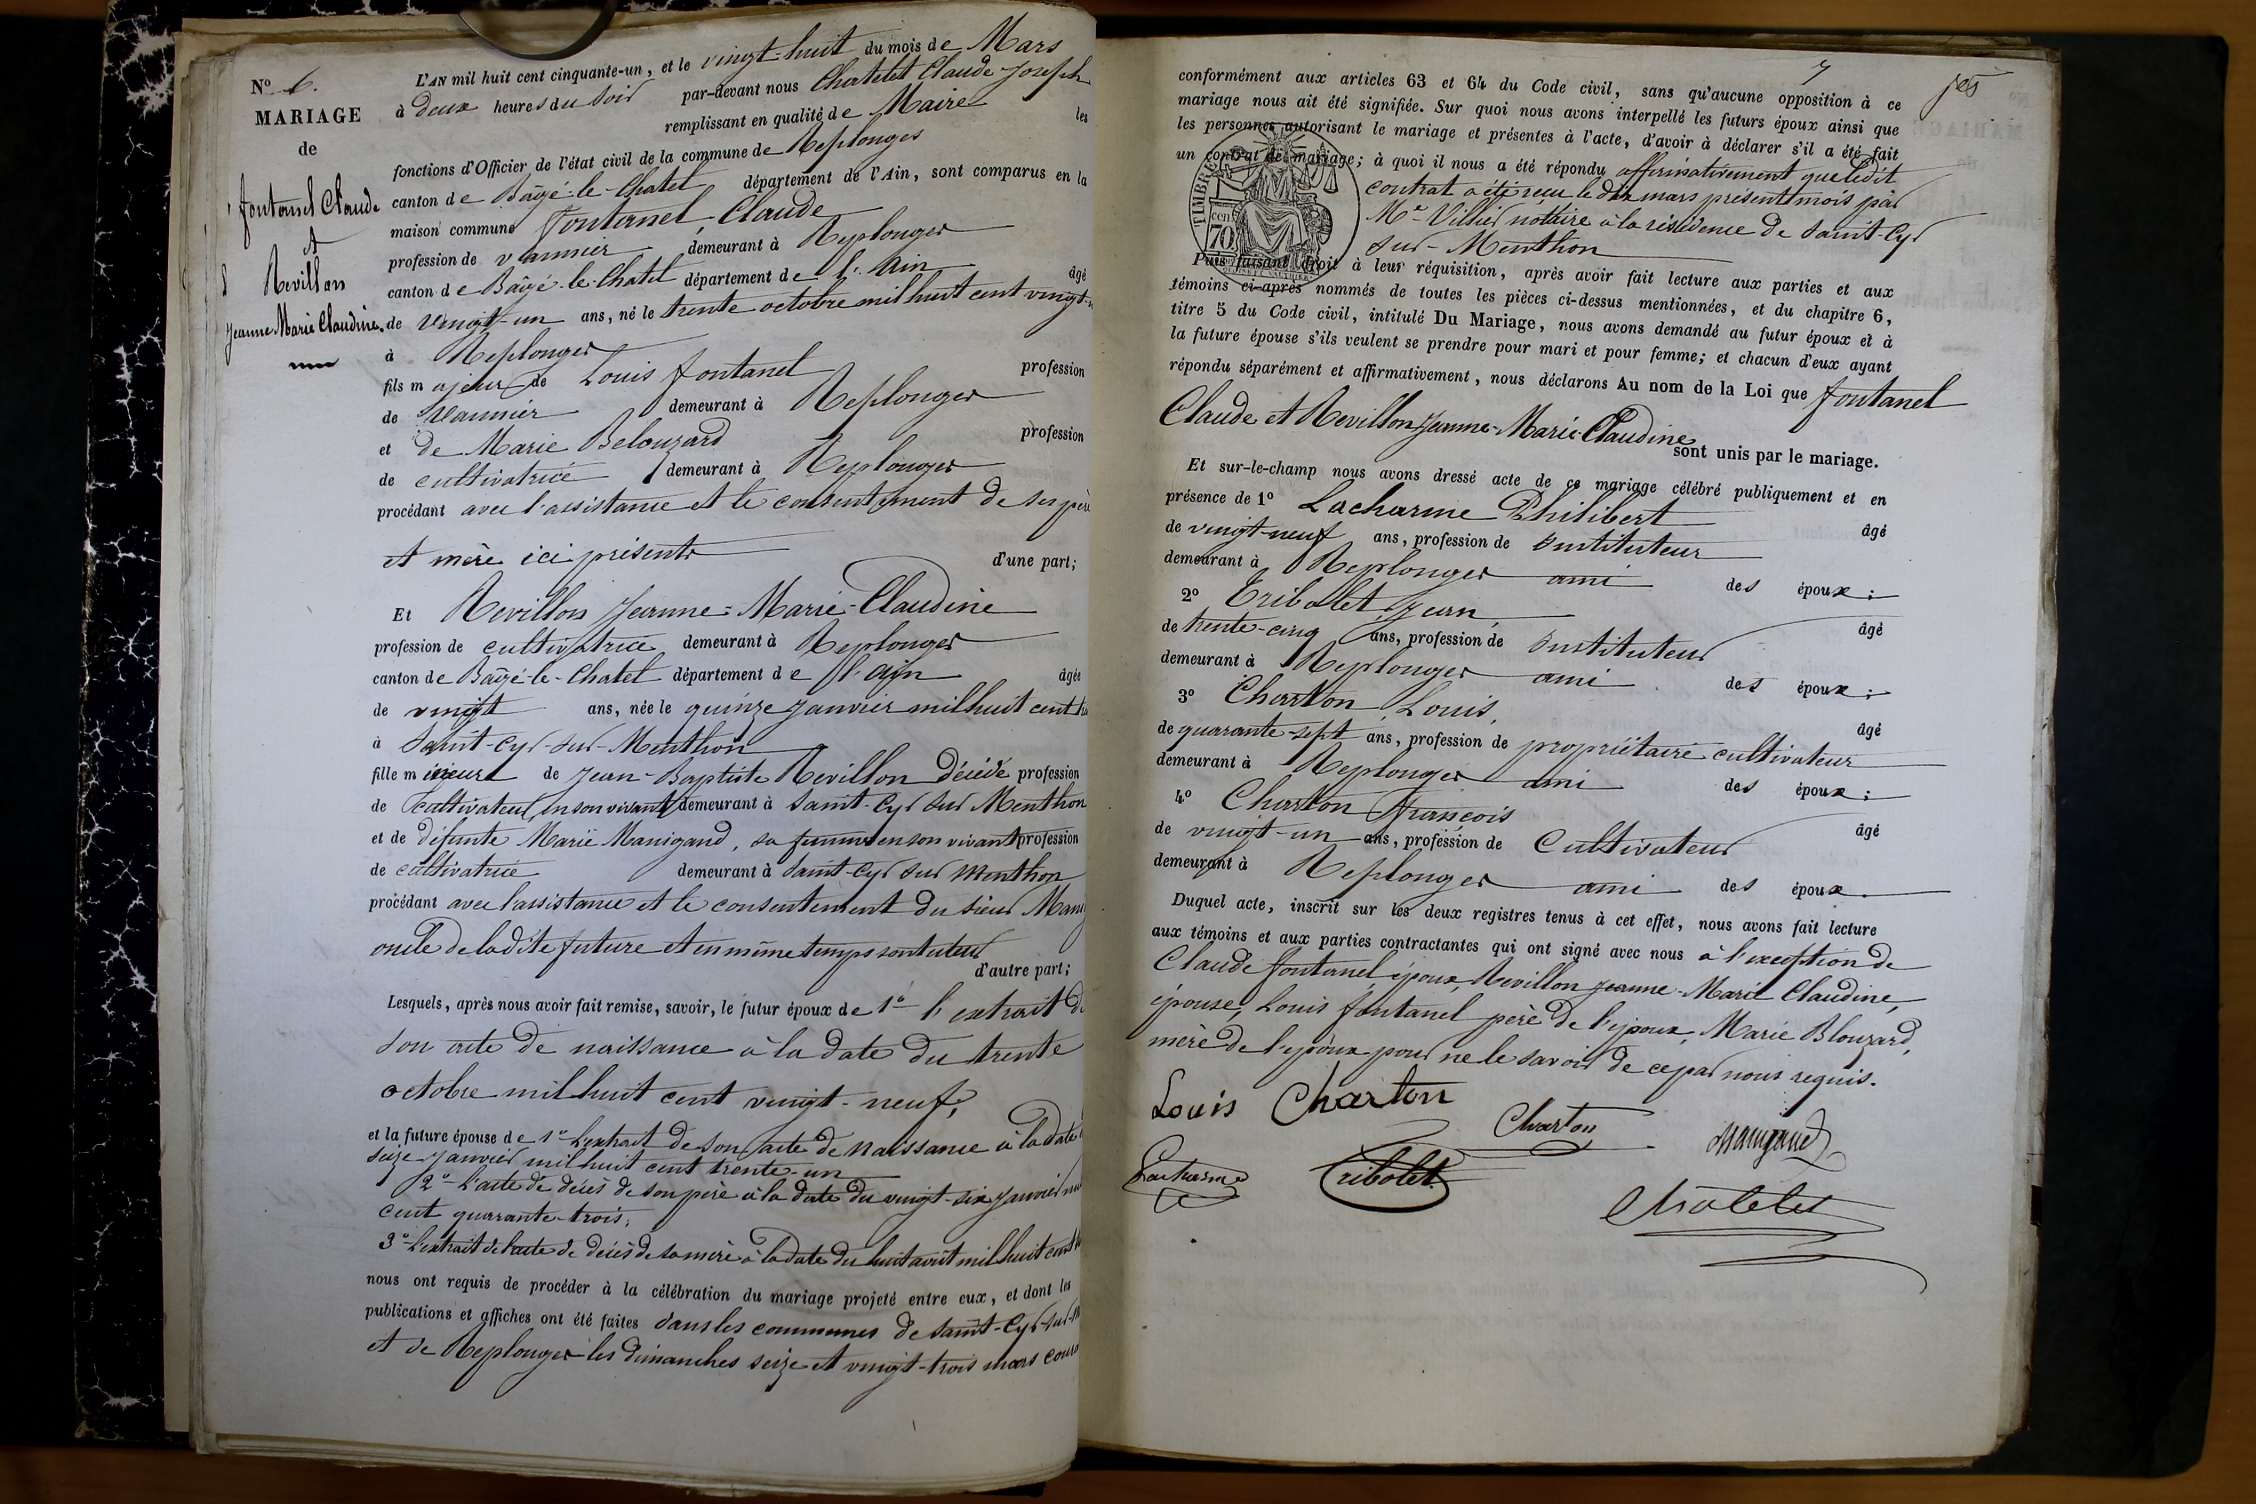 No 6.
MARIAGE
de
fontanel Claude
et
Revillon
Jeanne Marie Claudine.
L'AN mil huit cent cinquante-un, et le vingt-huit du mois de Mars
à deux heures du Soir par-devant nous Chatelet Claude Joseph
remplissant en qualité de Maire les
fonctions d'Officier de l'état civil de la commune de Replonges
canton de Bâgé-le-Chatel département de l'Ain, sont comparus en la
maison commune fontanel, Claude
profession de vannier demeurant à Replonges
canton de Bâgé-le-Chatel département de l'Ain âgé
de vingt-un ans, né le trente octobre mil huit cent vingt-
à Replonges
fils majeur de Louis fontanel profession
de vannier demeurant à Replonges
et de Marie Belouzard profession
de cultivatrice demeurant à Replonges
procédant avec l'assistance et le consentement de ses père
et mère ici présents d'une part;
Et Revillon Jeanne-Marie-Claudine
profession de cultivatrice demeurant à Replonges
canton de Bâgé-le-Chatel département de l'Ain âgée
de vingt ans, née le quinze janvier mil huit cent
à Saint-Cyr-sur-Menthon
fille mineure de Jean-Baptiste Revillon décédé profession
de cultivateur, en son vivant demeurant à Saint-Cyr sur Menthon
et de défunte Marie Manigand, sa femme en son vivant profession
de cultivatrice demeurant à Saint-Cyr sur Menthon
procédant avec l'assistance et le consentement du sieur
oncle de la dite future et en même temps son tuteur
d'autre part;
Lesquels, après nous avoir fait remise, savoir, le futur époux de 1º l'extrait de
son acte de naissance à la date du trente
octobre mil huit cent vingt-neuf,
et la future épouse de 1º L'extrait de son acte de naissance à la date
seize janvier mil huit cent trente-un
2º L'acte de décès de son père à la date du vingt-six janvier
cent quarante-trois;
3º L'extrait de l'acte de décès de sa mère à la date du huit août mil huit cent
nous ont requis de procéder à la célébration du mariage projeté entre eux, et dont les
publications et affiches ont été faites dans les communes de Saint-Cyr-sur-
et de Replonges les dimanches seize et vingt-trois mars
7
conformément aux articles 63 et 64 du Code civil, sans qu'aucune opposition à ce
mariage nous ait été signifiée. Sur quoi nous avons interpellé les futurs époux ainsi que
les personnes autorisant le mariage et présentes à l'acte, d'avoir à déclarer s'il a été fait
un contrat de mariage; à quoi il nous a été répondu affirmativement que ledit
contrat a été reçu le dix mars présent mois par
Me Villier notaire à la résidence de Saint-Cyr
sur-Menthon
TIMBRE
70 cen
Puis faisant droit à leur réquisition, après avoir fait lecture aux parties et aux
témoins ci-après nommés de toutes les pièces ci-dessus mentionnées, et du chapitre 6,
titre 5 du Code civil, intitulé Du Mariage, nous avons demandé au futur époux et à
la future épouse s'ils veulent se prendre pour mari et pour femme; et chacun d'eux ayant
répondu séparément et affirmativement, nous déclarons Au nom de la Loi que fontanel
Claude et Revillon Jeanne-Marie-Claudine
sont unis par le mariage.
Et sur-le-champ nous avons dressé acte de ce mariage célébré publiquement et en
présence de 1º Lacharme Philibert âgé
de vingt-neuf ans, profession de Instituteur
demeurant à Replonges ami des époux;
2º Tribolet, Jean, âgé
de trente-cinq ans, profession de Instituteur
demeurant à Replonges ami des époux;
3º Charton, Louis, âgé
de quarante-sept ans, profession de propriétaire cultivateur
demeurant à Replonges ami des époux;
4º Charton François âgé
de vingt-un ans, profession de Cultivateur
demeurant à Replonges ami des époux.
Duquel acte, inscrit sur les deux registres tenus à cet effet, nous avons fait lecture
aux témoins et aux parties contractantes qui ont signé avec nous à l'exception de
Claude fontanel, époux, Revillon Jeanne-Marie Claudine,
épouse, Louis fontanel père de l'époux, Marie Blouzard,
mère de l'époux pour ne le savoir de ce par nous requis.
Louis Charton
Charton
Manigand
Lacharme
Tribolet
Chatelet